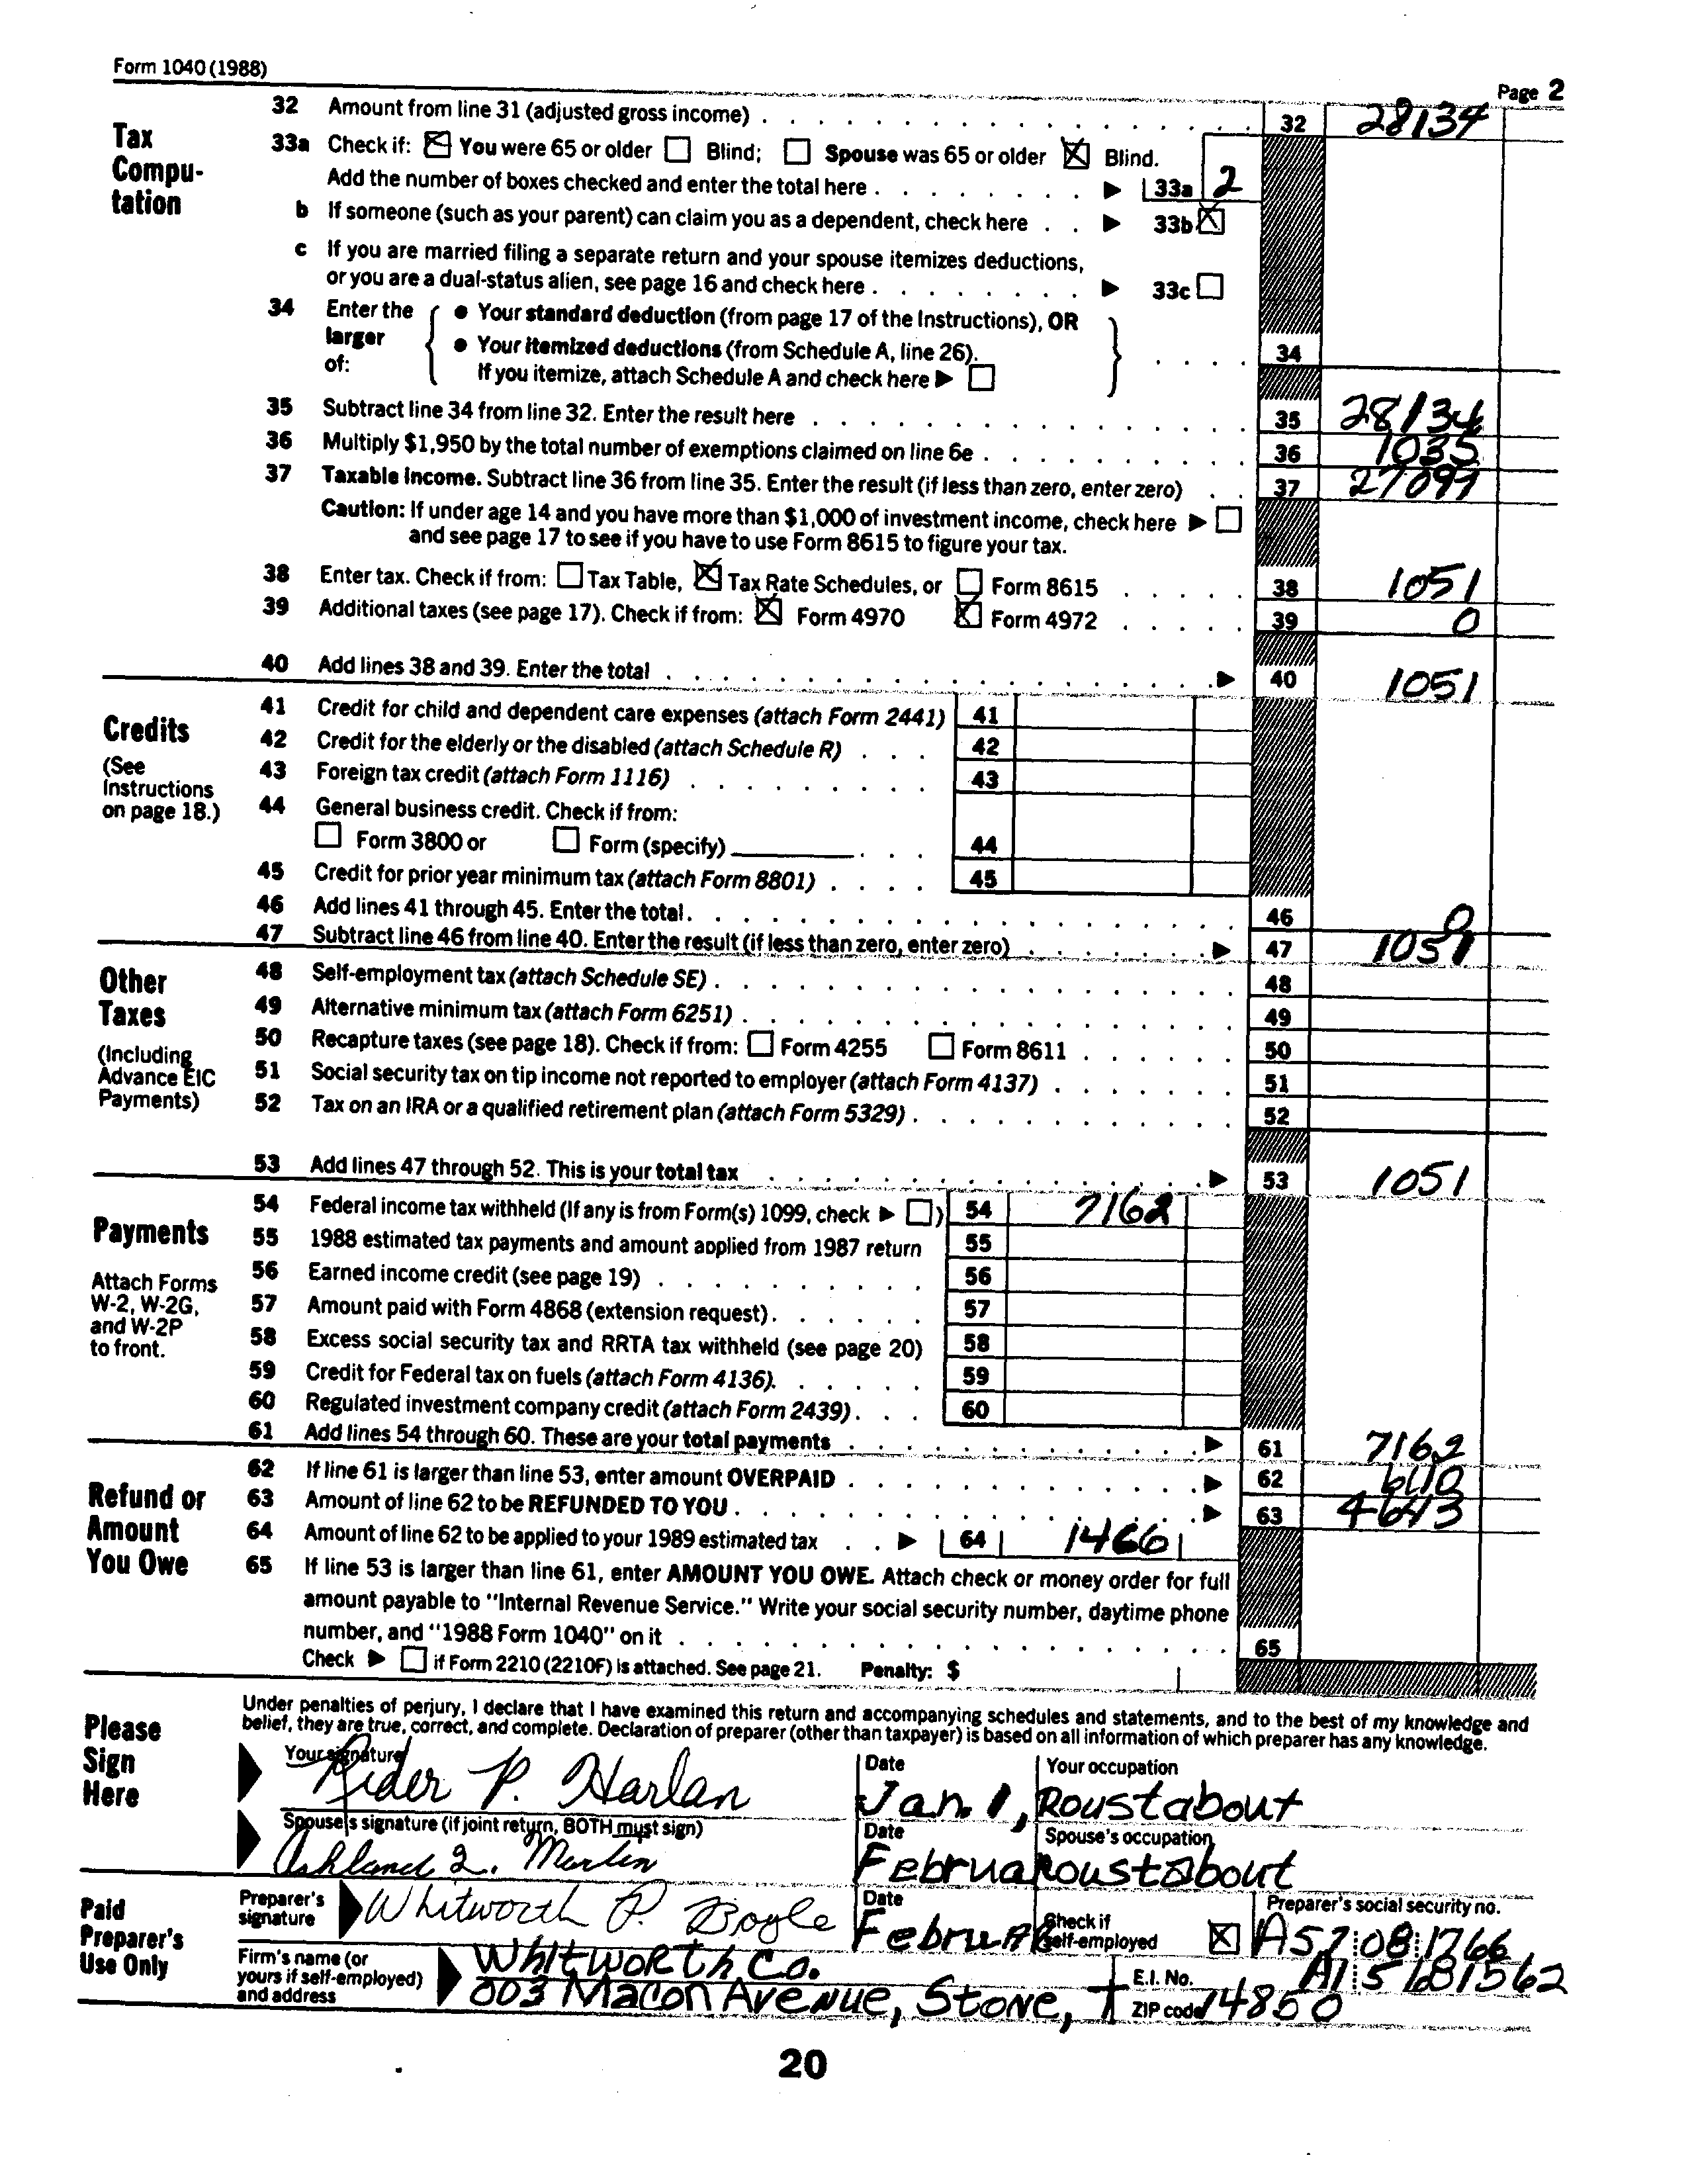 Form 1040 (1988)
Page 2
Tax Compu-tation
32 Amount from line 31 (adjusted gross income) 32 28134
33a Check if: ☒ You were 65 or older ☐ Blind; ☐ Spouse was 65 or older ☒ Blind.
Add the number of boxes checked and enter the total here ▶ 33a 2
b If someone (such as your parent) can claim you as a dependent, check here ▶ 33b ☒
c If you are married filing a separate return and your spouse itemizes deductions,
or you are a dual-status alien, see page 16 and check here ▶ 33c ☐
34 Enter the larger of:
● Your standard deduction (from page 17 of the Instructions), OR
● Your itemized deductions (from Schedule A, line 26).
If you itemize, attach Schedule A and check here ▶ ☐
34
35 Subtract line 34 from line 32. Enter the result here 35 28134
36 Multiply $1,950 by the total number of exemptions claimed on line 6e 36 1035
37 Taxable income. Subtract line 36 from line 35. Enter the result (if less than zero, enter zero) 37 27099
Caution: If under age 14 and you have more than $1,000 of investment income, check here ▶ ☐
and see page 17 to see if you have to use Form 8615 to figure your tax.
38 Enter tax. Check if from: ☐ Tax Table, ☒ Tax Rate Schedules, or ☐ Form 8615 38 1051
39 Additional taxes (see page 17). Check if from: ☒ Form 4970 ☒ Form 4972 39 0
40 Add lines 38 and 39. Enter the total ▶ 40 1051
Credits
(See Instructions on page 18.)
41 Credit for child and dependent care expenses (attach Form 2441) 41
42 Credit for the elderly or the disabled (attach Schedule R) 42
43 Foreign tax credit (attach Form 1116) 43
44 General business credit. Check if from:
☐ Form 3800 or ☐ Form (specify) 44
45 Credit for prior year minimum tax (attach Form 8801) 45
46 Add lines 41 through 45. Enter the total. 46 0
47 Subtract line 46 from line 40. Enter the result (if less than zero, enter zero) ▶ 47 1051
Other Taxes
(Including Advance EIC Payments)
48 Self-employment tax (attach Schedule SE) 48
49 Alternative minimum tax (attach Form 6251) 49
50 Recapture taxes (see page 18). Check if from: ☐ Form 4255 ☐ Form 8611 50
51 Social security tax on tip income not reported to employer (attach Form 4137) 51
52 Tax on an IRA or a qualified retirement plan (attach Form 5329) 52
53 Add lines 47 through 52. This is your total tax ▶ 53 1051
Payments
Attach Forms W-2, W-2G, and W-2P to front.
54 Federal income tax withheld (If any is from Form(s) 1099, check ▶ ☐) 54 7162
55 1988 estimated tax payments and amount applied from 1987 return 55
56 Earned income credit (see page 19) 56
57 Amount paid with Form 4868 (extension request) 57
58 Excess social security tax and RRTA tax withheld (see page 20) 58
59 Credit for Federal tax on fuels (attach Form 4136) 59
60 Regulated investment company credit (attach Form 2439) 60
61 Add lines 54 through 60. These are your total payments ▶ 61 7162
Refund or Amount You Owe
62 If line 61 is larger than line 53, enter amount OVERPAID ▶ 62 6110
63 Amount of line 62 to be REFUNDED TO YOU ▶ 63 4643
64 Amount of line 62 to be applied to your 1989 estimated tax ▶ 64 1466
65 If line 53 is larger than line 61, enter AMOUNT YOU OWE. Attach check or money order for full
amount payable to "Internal Revenue Service." Write your social security number, daytime phone
number, and "1988 Form 1040" on it 65
Check ▶ ☐ if Form 2210 (2210F) is attached. See page 21. Penalty: $
Please Sign Here
Under penalties of perjury, I declare that I have examined this return and accompanying schedules and statements, and to the best of my knowledge and
belief, they are true, correct, and complete. Declaration of preparer (other than taxpayer) is based on all information of which preparer has any knowledge.
Your signature Rider P. Harlan Date Jan. 1, Your occupation Roustabout
Spouse's signature (if joint return, BOTH must sign) Ashland Q. Martin Date Februa Spouse's occupation Roustabout
Paid Preparer's Use Only
Preparer's signature Whitworth P. Boyle Date Februar Check if self-employed ☒ Preparer's social security no. A57 08 1766
Firm's name (or yours if self-employed) and address Whitworth Co. E.I. No. A1 5681562
003 Macon Avenue, Stone, ZIP code 14850
20